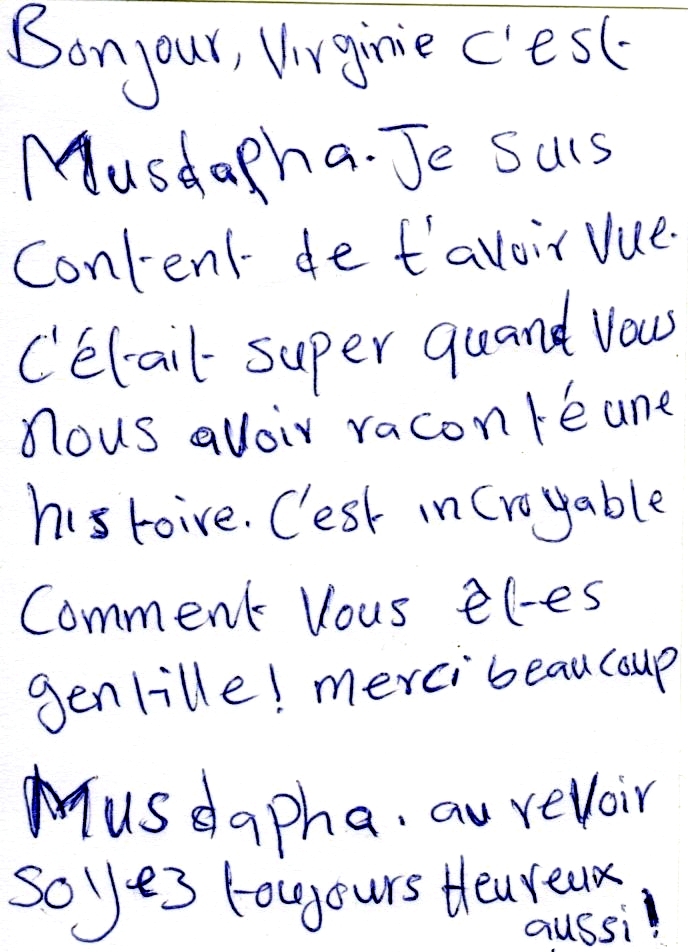 Bonjour, Virginie c'est
Musdapha. Je suis
content de t'avoir vue.
C'était super quand vous
nous avoir raconté une
histoire. C'est incroyable
comment vous êtes
gentille! merci beaucoup
Musdapha. au revoir
soyez toujours Heureux
aussi!